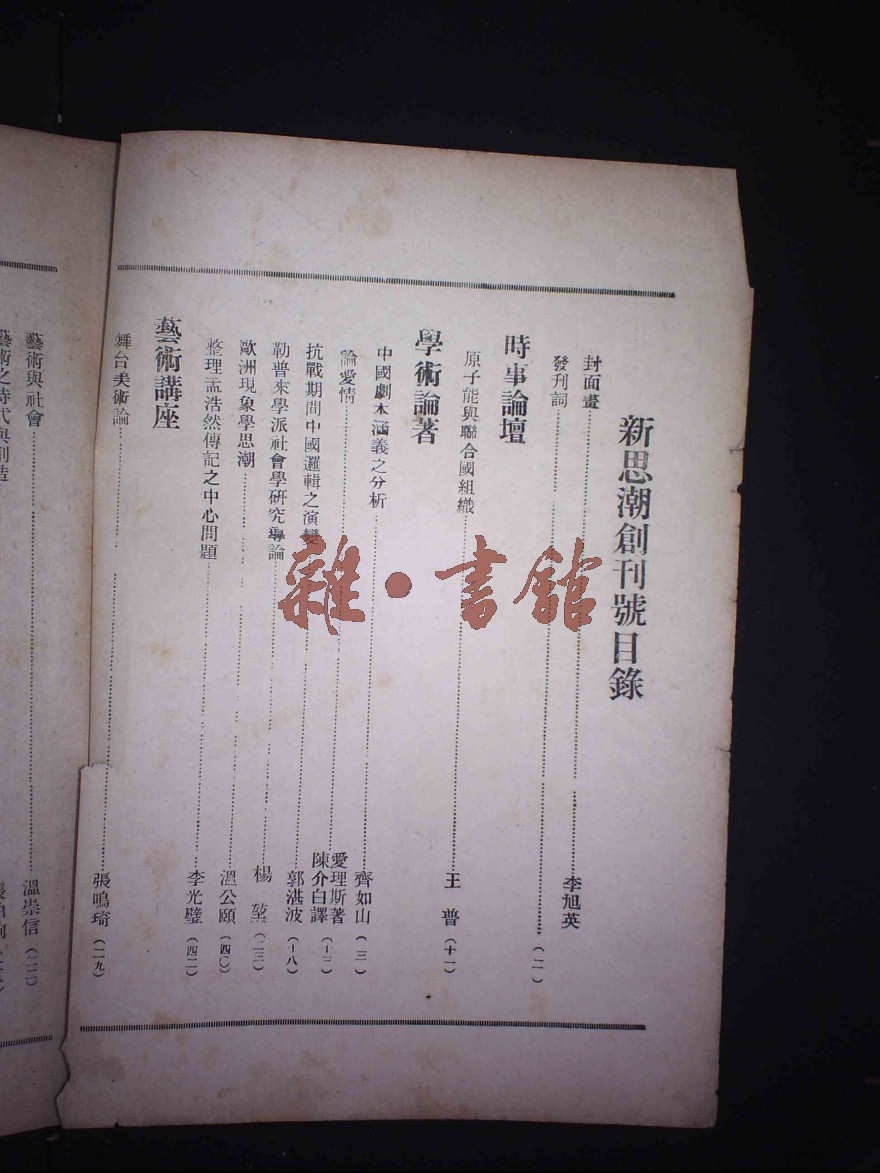 新思潮創刊號目錄
封面畫 李旭英
發刊詞 (二)
時事論壇
原子能與聯合國組織 王普 (十一)
學術論著
中國劇本涵義之分析 齊如山 (三)
論愛情 愛理斯著 陳介白譯
抗戰期間中國邏輯之演變 郭湛波 (十八)
勒普來學派社會學研究導論 楊堃 (二三)
歐洲現象學思潮 溫公頤 (四〇)
整理孟浩然傳記之中心問題 李光璧 (四二)
藝術講座
舞台美術論 張鳴琦 (二九)
藝術與社會 溫崇信 (二二)
藝術之時代與創造
雜·書館